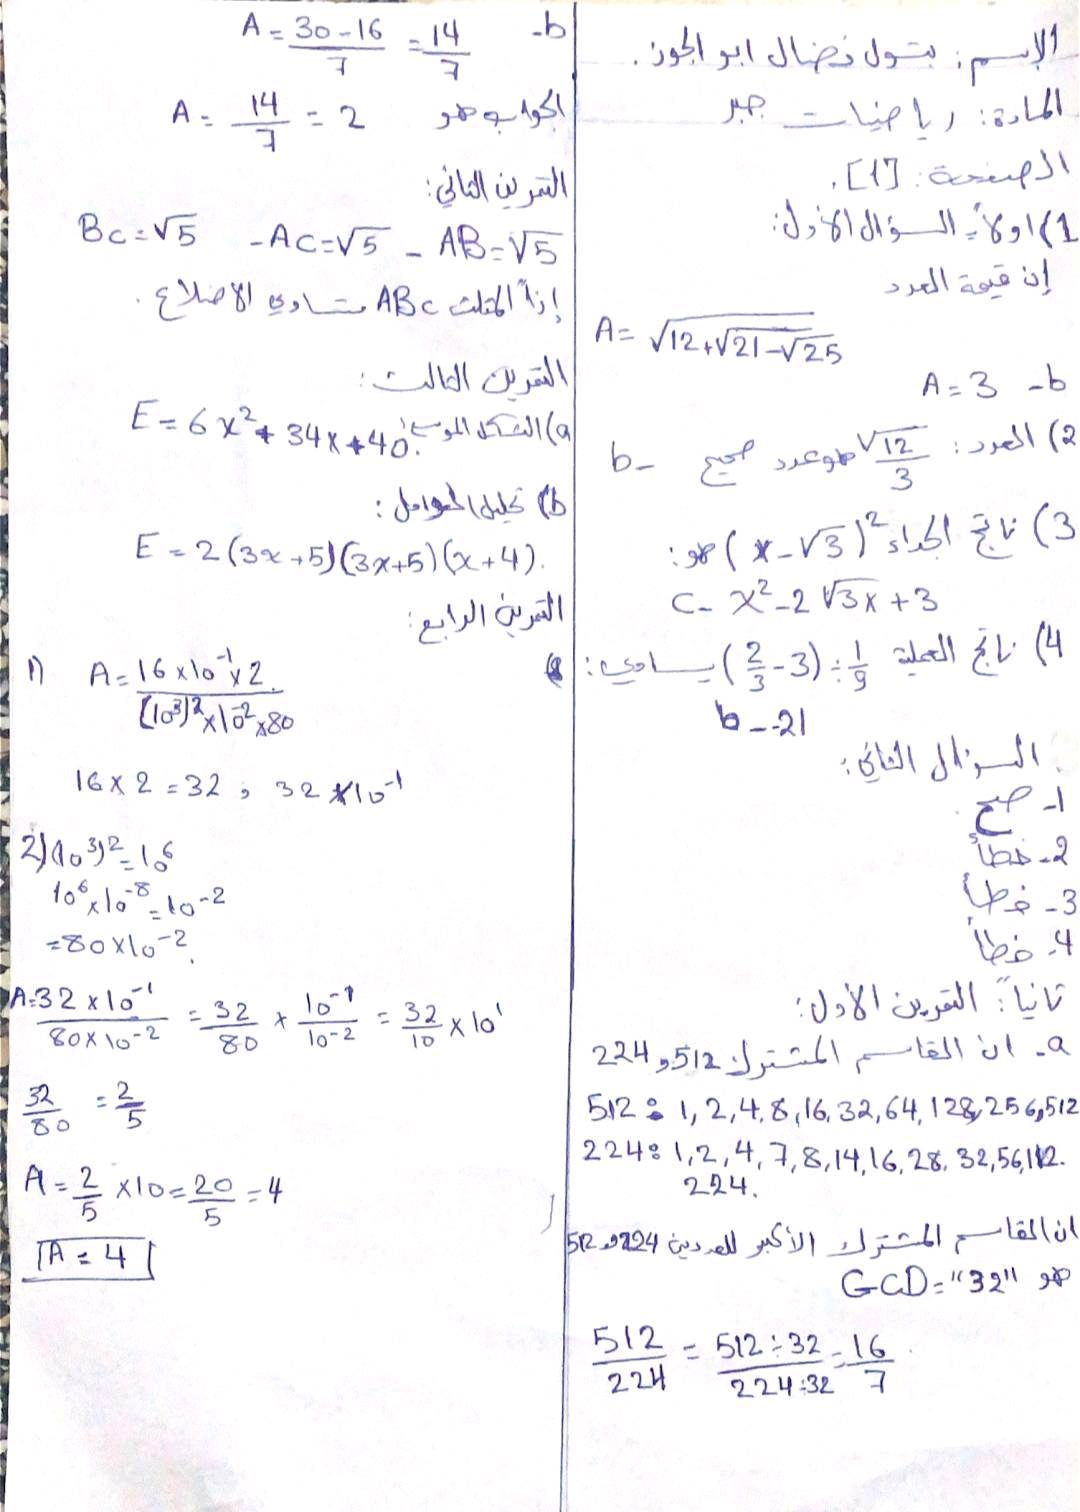 الإسم: بتول نضال ابو الجوز.
المادة: رياضيات جبر
الصفحة: [1].
1) اولاً: السؤال الأول:
إن قيمة العدد
A = √12+√21-√25
A = 3 -b
2) العدد: √12/3 هو عدد صحيح b-
3) ناتج الجداء (x-√3)² هو:
C- x²-2√3x+3
4) ناتج العملية 1/9 ÷ (2/3 - 3) يساوي:
b - -21
السؤال الثاني:
1- صح.
2- خطأ
3- خطأ
4- خطأ
ثانياً: التمرين الأول:
a- ان القاسم المشترك 512 و 224
512: 1, 2, 4, 8, 16, 32, 64, 128, 256, 512
224: 1, 2, 4, 7, 8, 14, 16, 28, 32, 56, 112.
224.
ان القاسم المشترك الأكبر للعددين 224 و 512
هو GCD = "32"
512/224 = 512÷32/224÷32 = 16/7
b- A = 30-16/7 = 14/7
الجواب هو A = 14/7 = 2
التمرين الثاني:
BC=√5 - AC=√5 - AB=√5
إذاً المثلث ABC متساوي الاضلاع.
التمرين الثالث:
a) الشكل الموسع: E = 6x² + 34x + 40.
b) تحليل العوامل:
E = 2(3x+5)(3x+5)(x+4).
التمرين الرابع:
1) A = 16×10⁻¹×2/(10³)²×10⁻²×80
16 × 2 = 32 , 32 × 10⁻¹
2) (10³)² = 10⁶
10⁶×10⁻⁸ = 10⁻²
= 80×10⁻².
A = 32×10⁻¹/80×10⁻² = 32/80 × 10⁻¹/10⁻² = 32/10 × 10¹
32/80 = 2/5
A = 2/5 × 10 = 20/5 = 4
A = 4